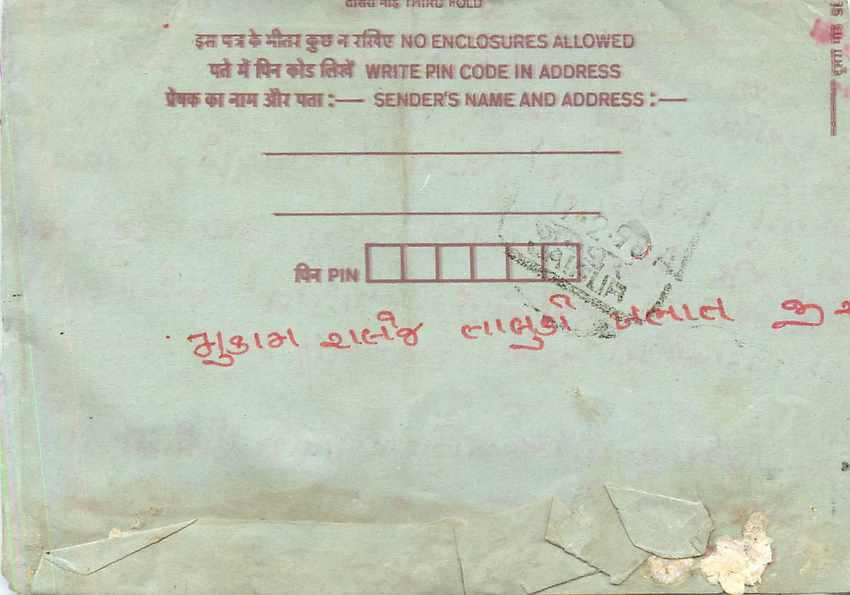 तीसरा मोड़ THIRD FOLD
इस पत्र के भीतर कुछ न रखिए NO ENCLOSURES ALLOWED
पते में पिन कोड लिखें WRITE PIN CODE IN ADDRESS
प्रेषक का नाम और पता :— SENDER'S NAME AND ADDRESS :—
पिन PIN
મુકામ રાલેજ તાલુકો ખંભાત જી
दूसरा मोड़